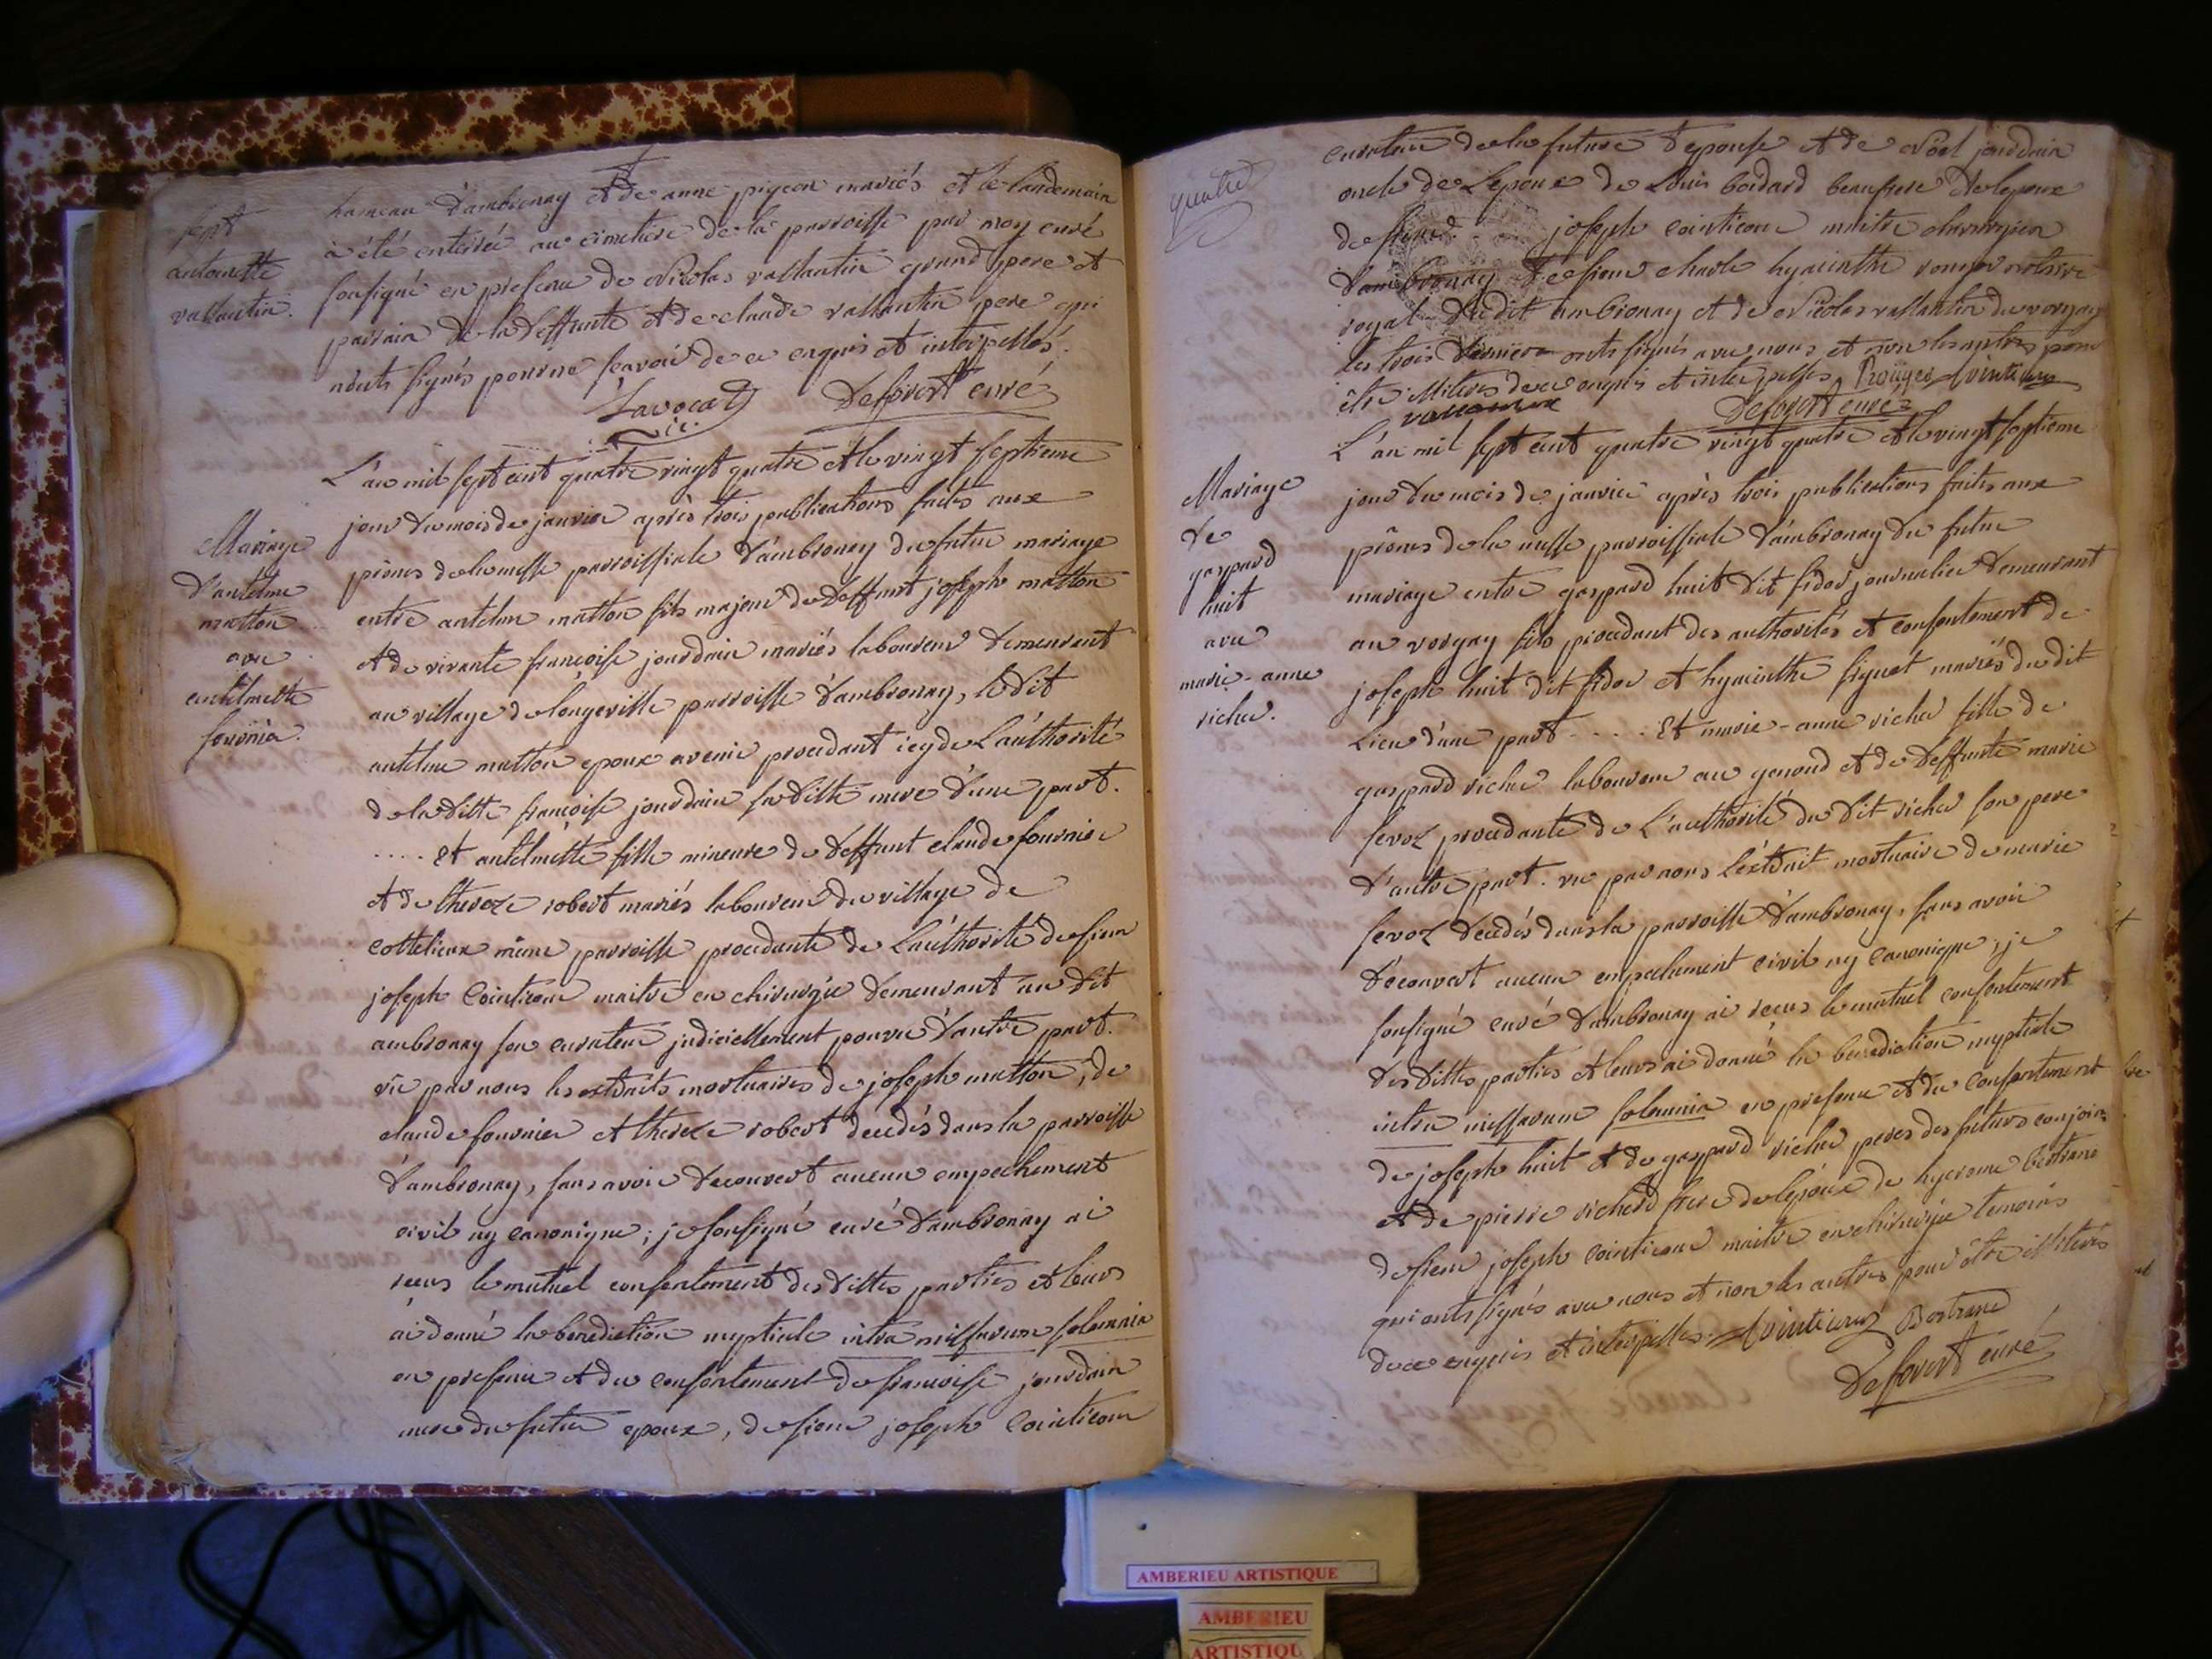 hameau d'ambronay et de anne pigeon mariés et le landemain
à été enterrée au cimetiere de la parroisse par moy curé
sousigné en presence de Nicolas vallantin grand pere et
parrain de la deffunte et de claude vallantin pere qui
n'onts signés pour ne sçavoir de ce enquis et interpellés.
Lavocat Deforert curé
antoinette
vallantin.
L'an mil sept cent quatre vingt quatre et le vingt septieme
jour du mois de janvier après trois publications faites aux
prônes de la messe parroissiale d'ambronay du futur mariage
entre antelme matton fils majeur de deffunt joseph matton
et de vivante françoise jourdain mariés laboureur demeurant
au village de longeville parroisse d'ambronay, le dit
antelme matton epoux avenir procedant icy de L'authorité
de la ditte françoise jourdain sa ditte mere d'une part.
.... Et antelmette fille mineure de deffunt claude fournier
et de thereze robert mariés laboureur du village de
cottelieux même parroisse procedante de L'authorité de sieur
joseph Cointicour maitre en chirurgie demeurant au dit
ambronay son curateur judiciellement pourvu d'autre part.
vû par nous les extraits mortuaires de joseph matton, de
claude fournier et thereze robert decedés dans la parroisse
d'ambronay, sans avoir decouvert aucun empechement
civil ny canonique; je sousigné curé d'ambronay ai
recus le mutuel consentement des dittes parties et leurs
ai donné la benediction nuptiale intra missarum solemnia
en presence et du consentement de françoise jourdain
mere du futur epoux, de sieur joseph Cointicour
Mariage
d'antelme
matton
avec
antelmette
fournier.
curateur de la future epouse et de Noël jourdain
oncle de L'epoux de Louis bodard beaufrere de lepoux
de sieur joseph cointicour maitre chirurgien
d'ambronay de sieur charle hyacinthe rouyer notaire
royal du dit ambronay et de Nicolas vallantin du vorgay
les trois derniers onts signés avec nous et non les autres pour
être illiterés de ce enquis et interpellés Rouyer Cointicour
vallantin Deforert curé
L'an mil sept cent quatre vingt quatre et le vingt septieme
jour du mois de janvier après trois publications faites aux
prônes de la messe parroissiale d'ambronay du futur
mariage entre gaspard huit dit fidor journalier demeurant
au vorgay fils procedant des authorités et consentement de
joseph huit dit fidor et hyacinthe siguet mariés du dit
Lieu d'une part ..... Et marie-anne richer fille de
gaspard richer laboureur au genoud et de deffunte marie
sevoz procedante de L'authorité du dit richer son pere
d'autre part. vu par nous L'extrait mortuaire de marie
sevoz decedés dans la parroisse d'ambronay, sans avoir
découvert aucun empechement civil ny canonique; je
sousigné curé d'ambronay ai recus le mutuel consentement
des dittes parties et leurs ai donné la benediction nuptiale
intra missarum solemnia en presence et du consentement
de joseph huit et de gaspard richer peres des futurs conjoins
et de pierre richerd frere de lepouse de hyerome bertrand
de sieur joseph cointicour maitre en chirurgie temoins
qui onts signés avec nous et non les autres pour être illiterés
de ce enquis et interpellés. Cointicour Bertrand
Deforert curé
quatre
Mariage
de
gaspard
huit
avec
marie-anne
richer.
AMBERIEU ARTISTIQUE
AMBERIEU
ARTISTIQU